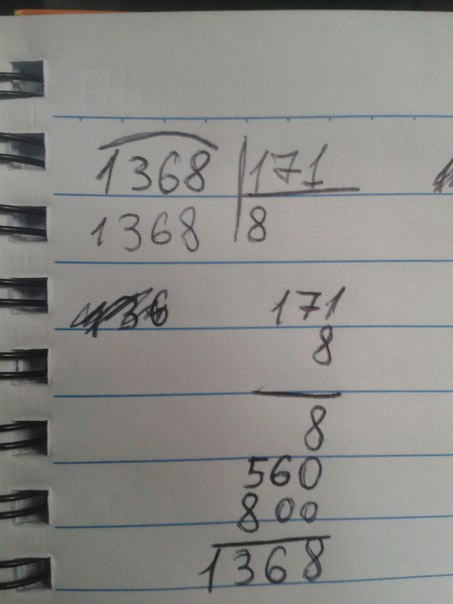 1368 171
1368 8
36 171
8
8
560
800
1368